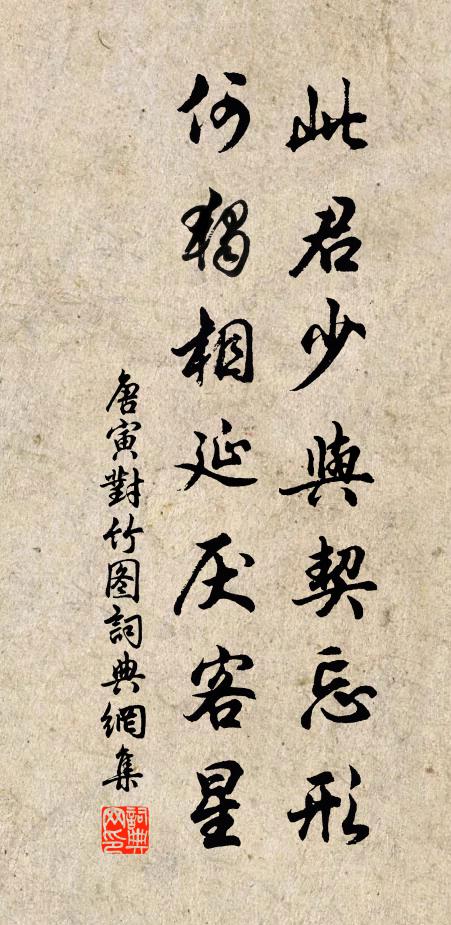 此君少與契忘形
何獨相延厌客星
唐寅對竹图詞典網集
詞典網印